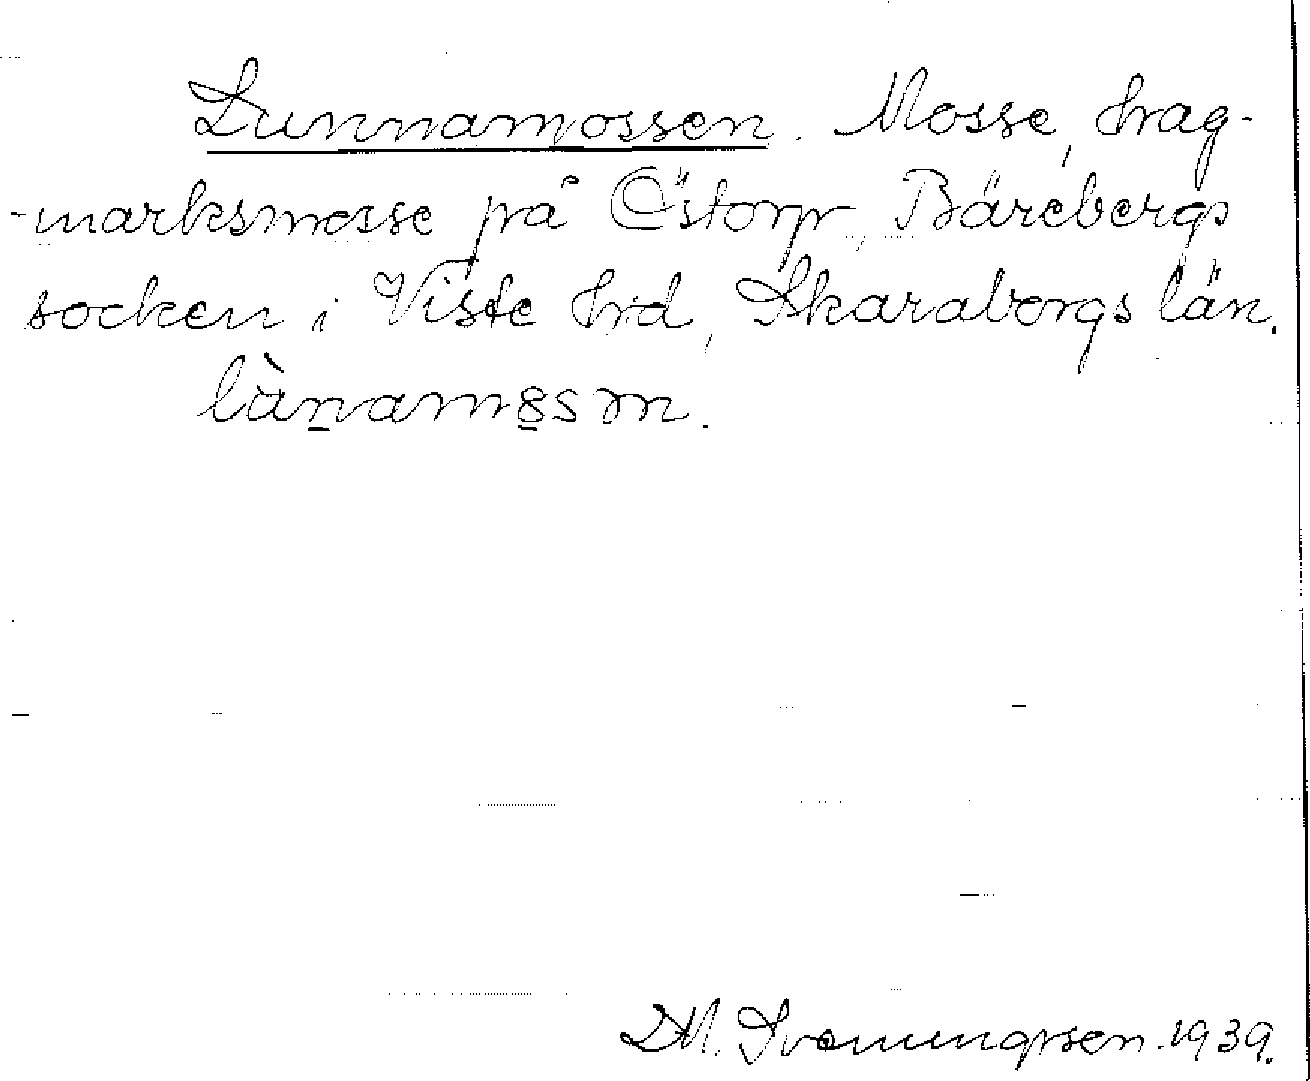 Lunnamossen. Mosse, hag-
-marksmosse på Östorp, Bärebergs
socken i Viste hrd, Skaraborgs län.
lànamossm.
D.M. Svenungsson. 1939.